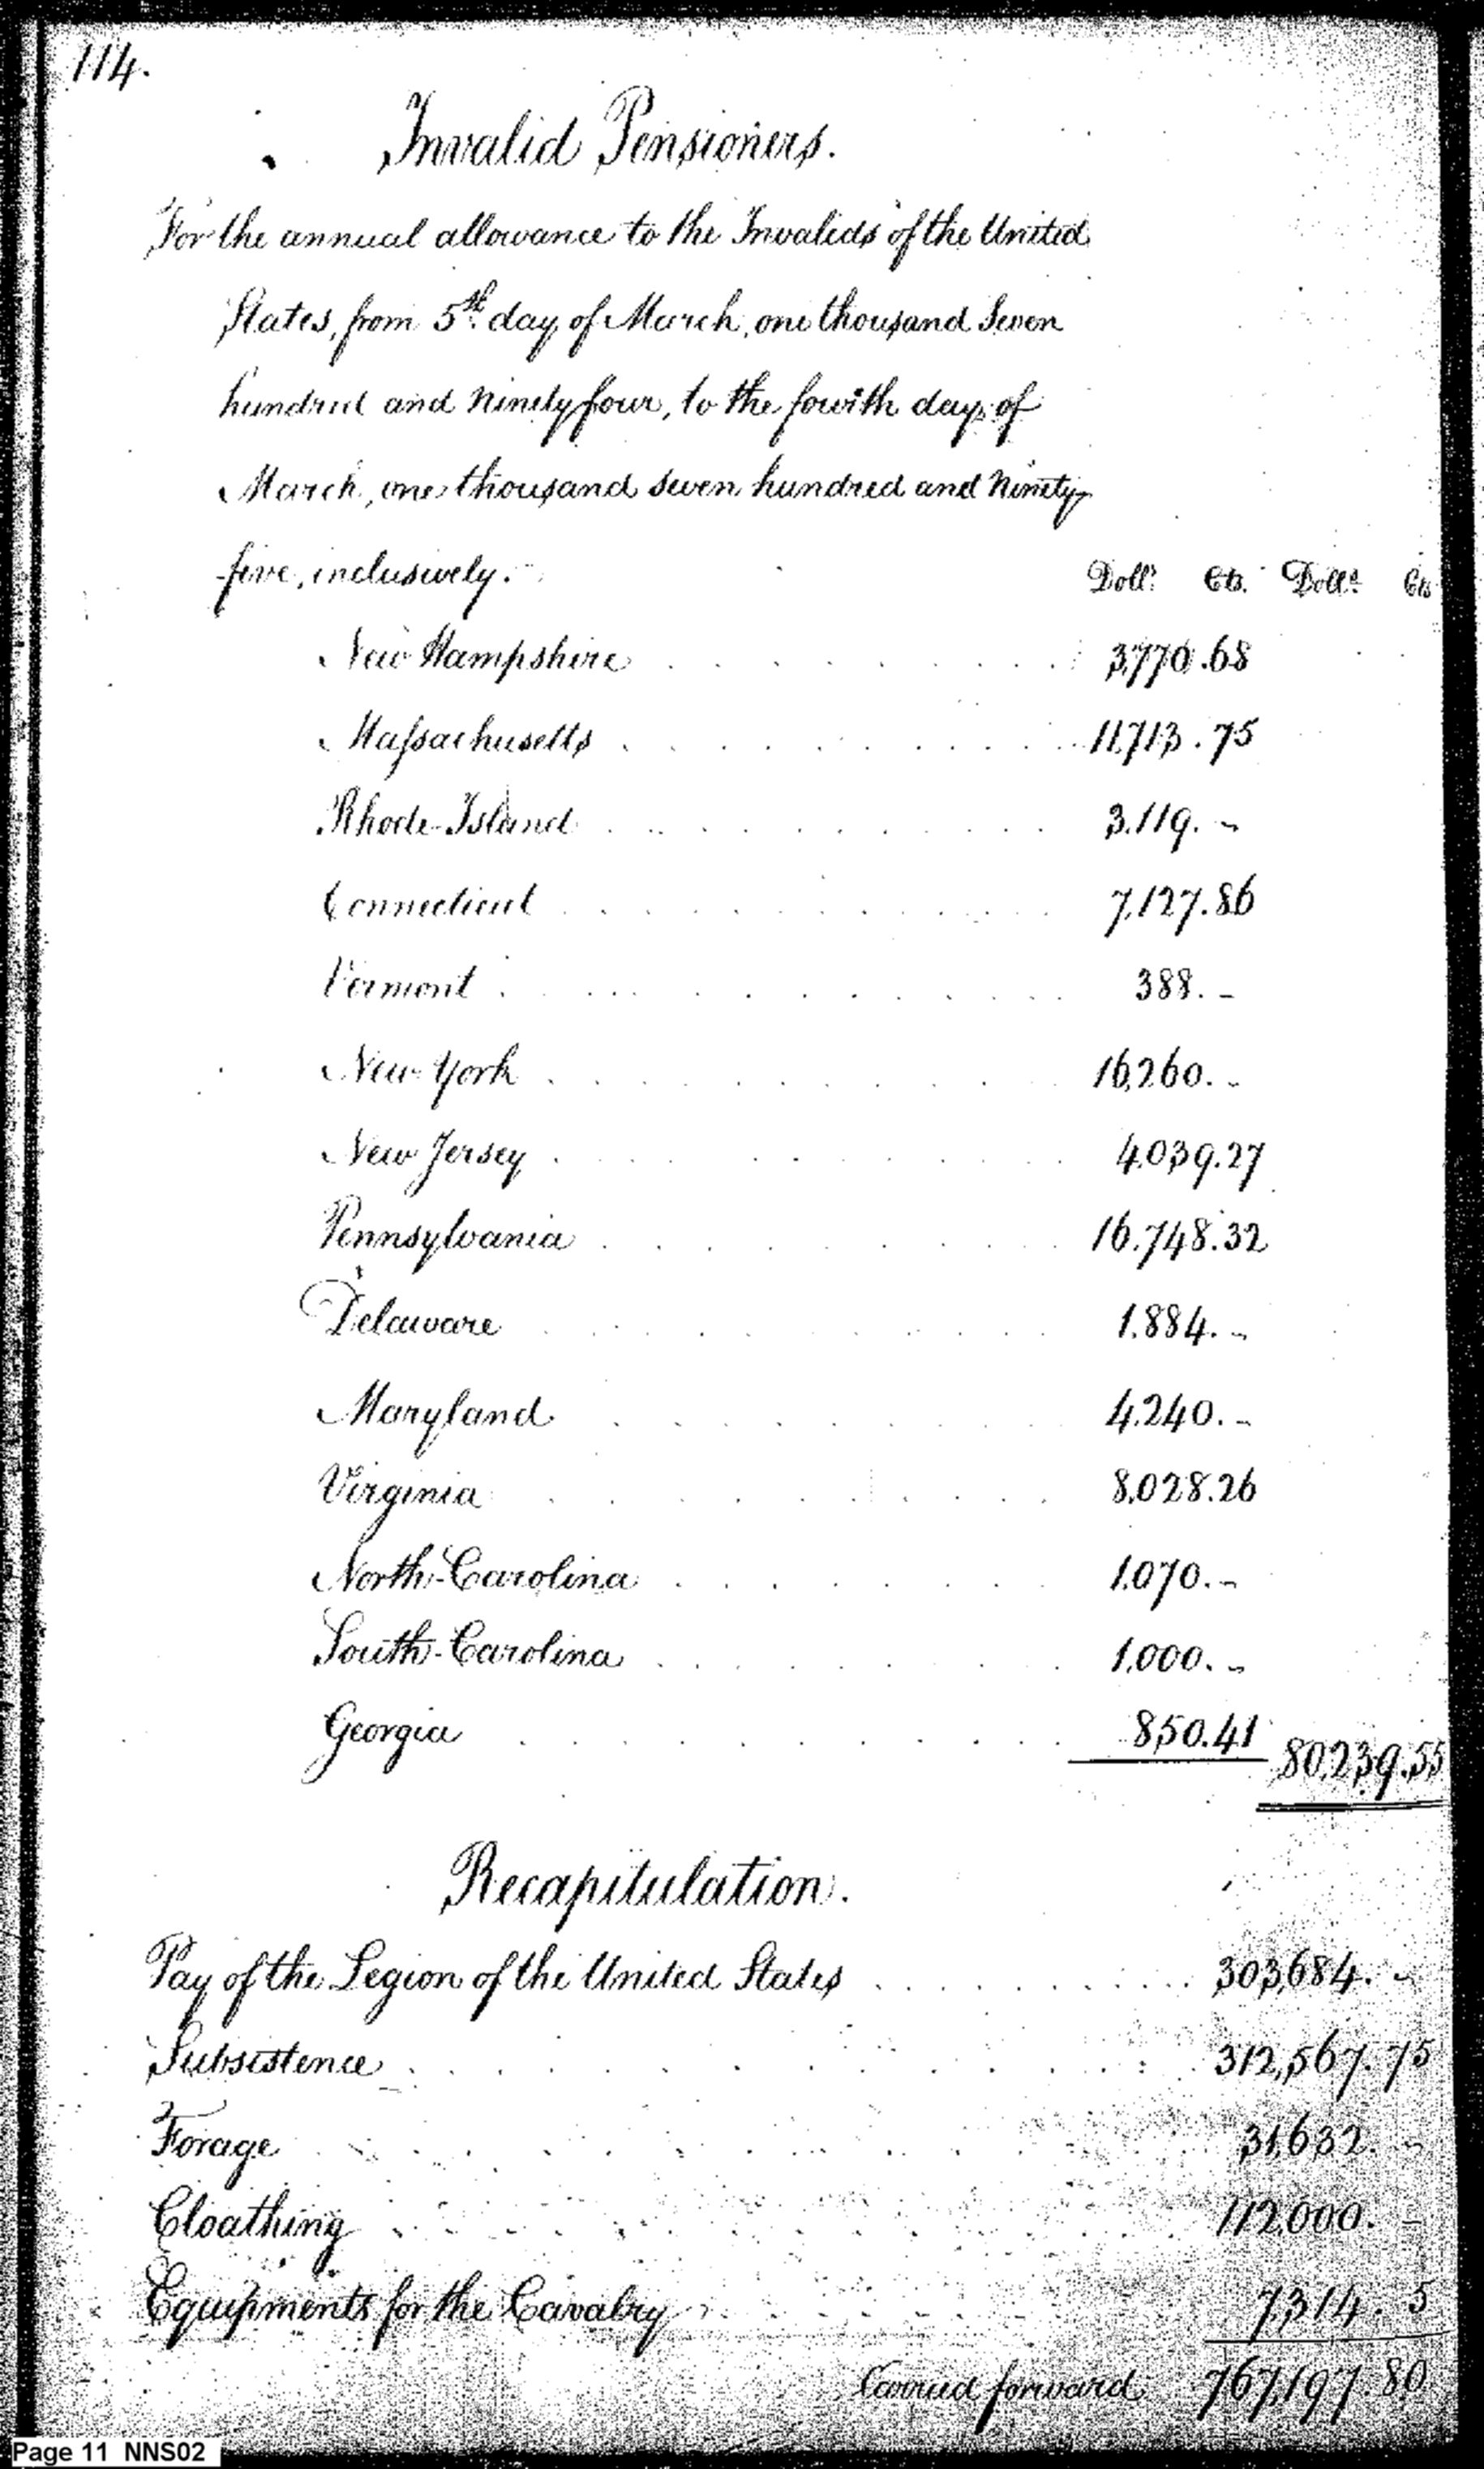 114.
Invalid Pensioners.
For the annual allowance to the Invalids of the United
States, from 5th day of March, one thousand Seven
hundred and Ninety four, to the fourth day of
March, one thousand seven hundred and Ninety
five, inclusively.
Dolls Cts. Dolls Cts
New Hampshire 3,770.68
Massachusetts 11,713.75
Rhode-Island 3.119.-
Connecticut 7,127.86
Vermont 388.-
New-York 16,260.-
New Jersey 4.039.27
Pennsylvania 16.748.32
Delaware 1.884.-
Maryland 4.240.-
Virginia 8,028.26
North-Carolina 1.070.-
South-Carolina 1.000.-
Georgia 850.41 80,239.55
Recapitulation.
Pay of the Legion of the United States 303,684.-
Subsistence 312,567.75
Forage 31,632.-
Cloathing 112,000.-
Equipments for the Cavalry 7,314.5
Carried forward 767,197.80
Page 11 NNS02